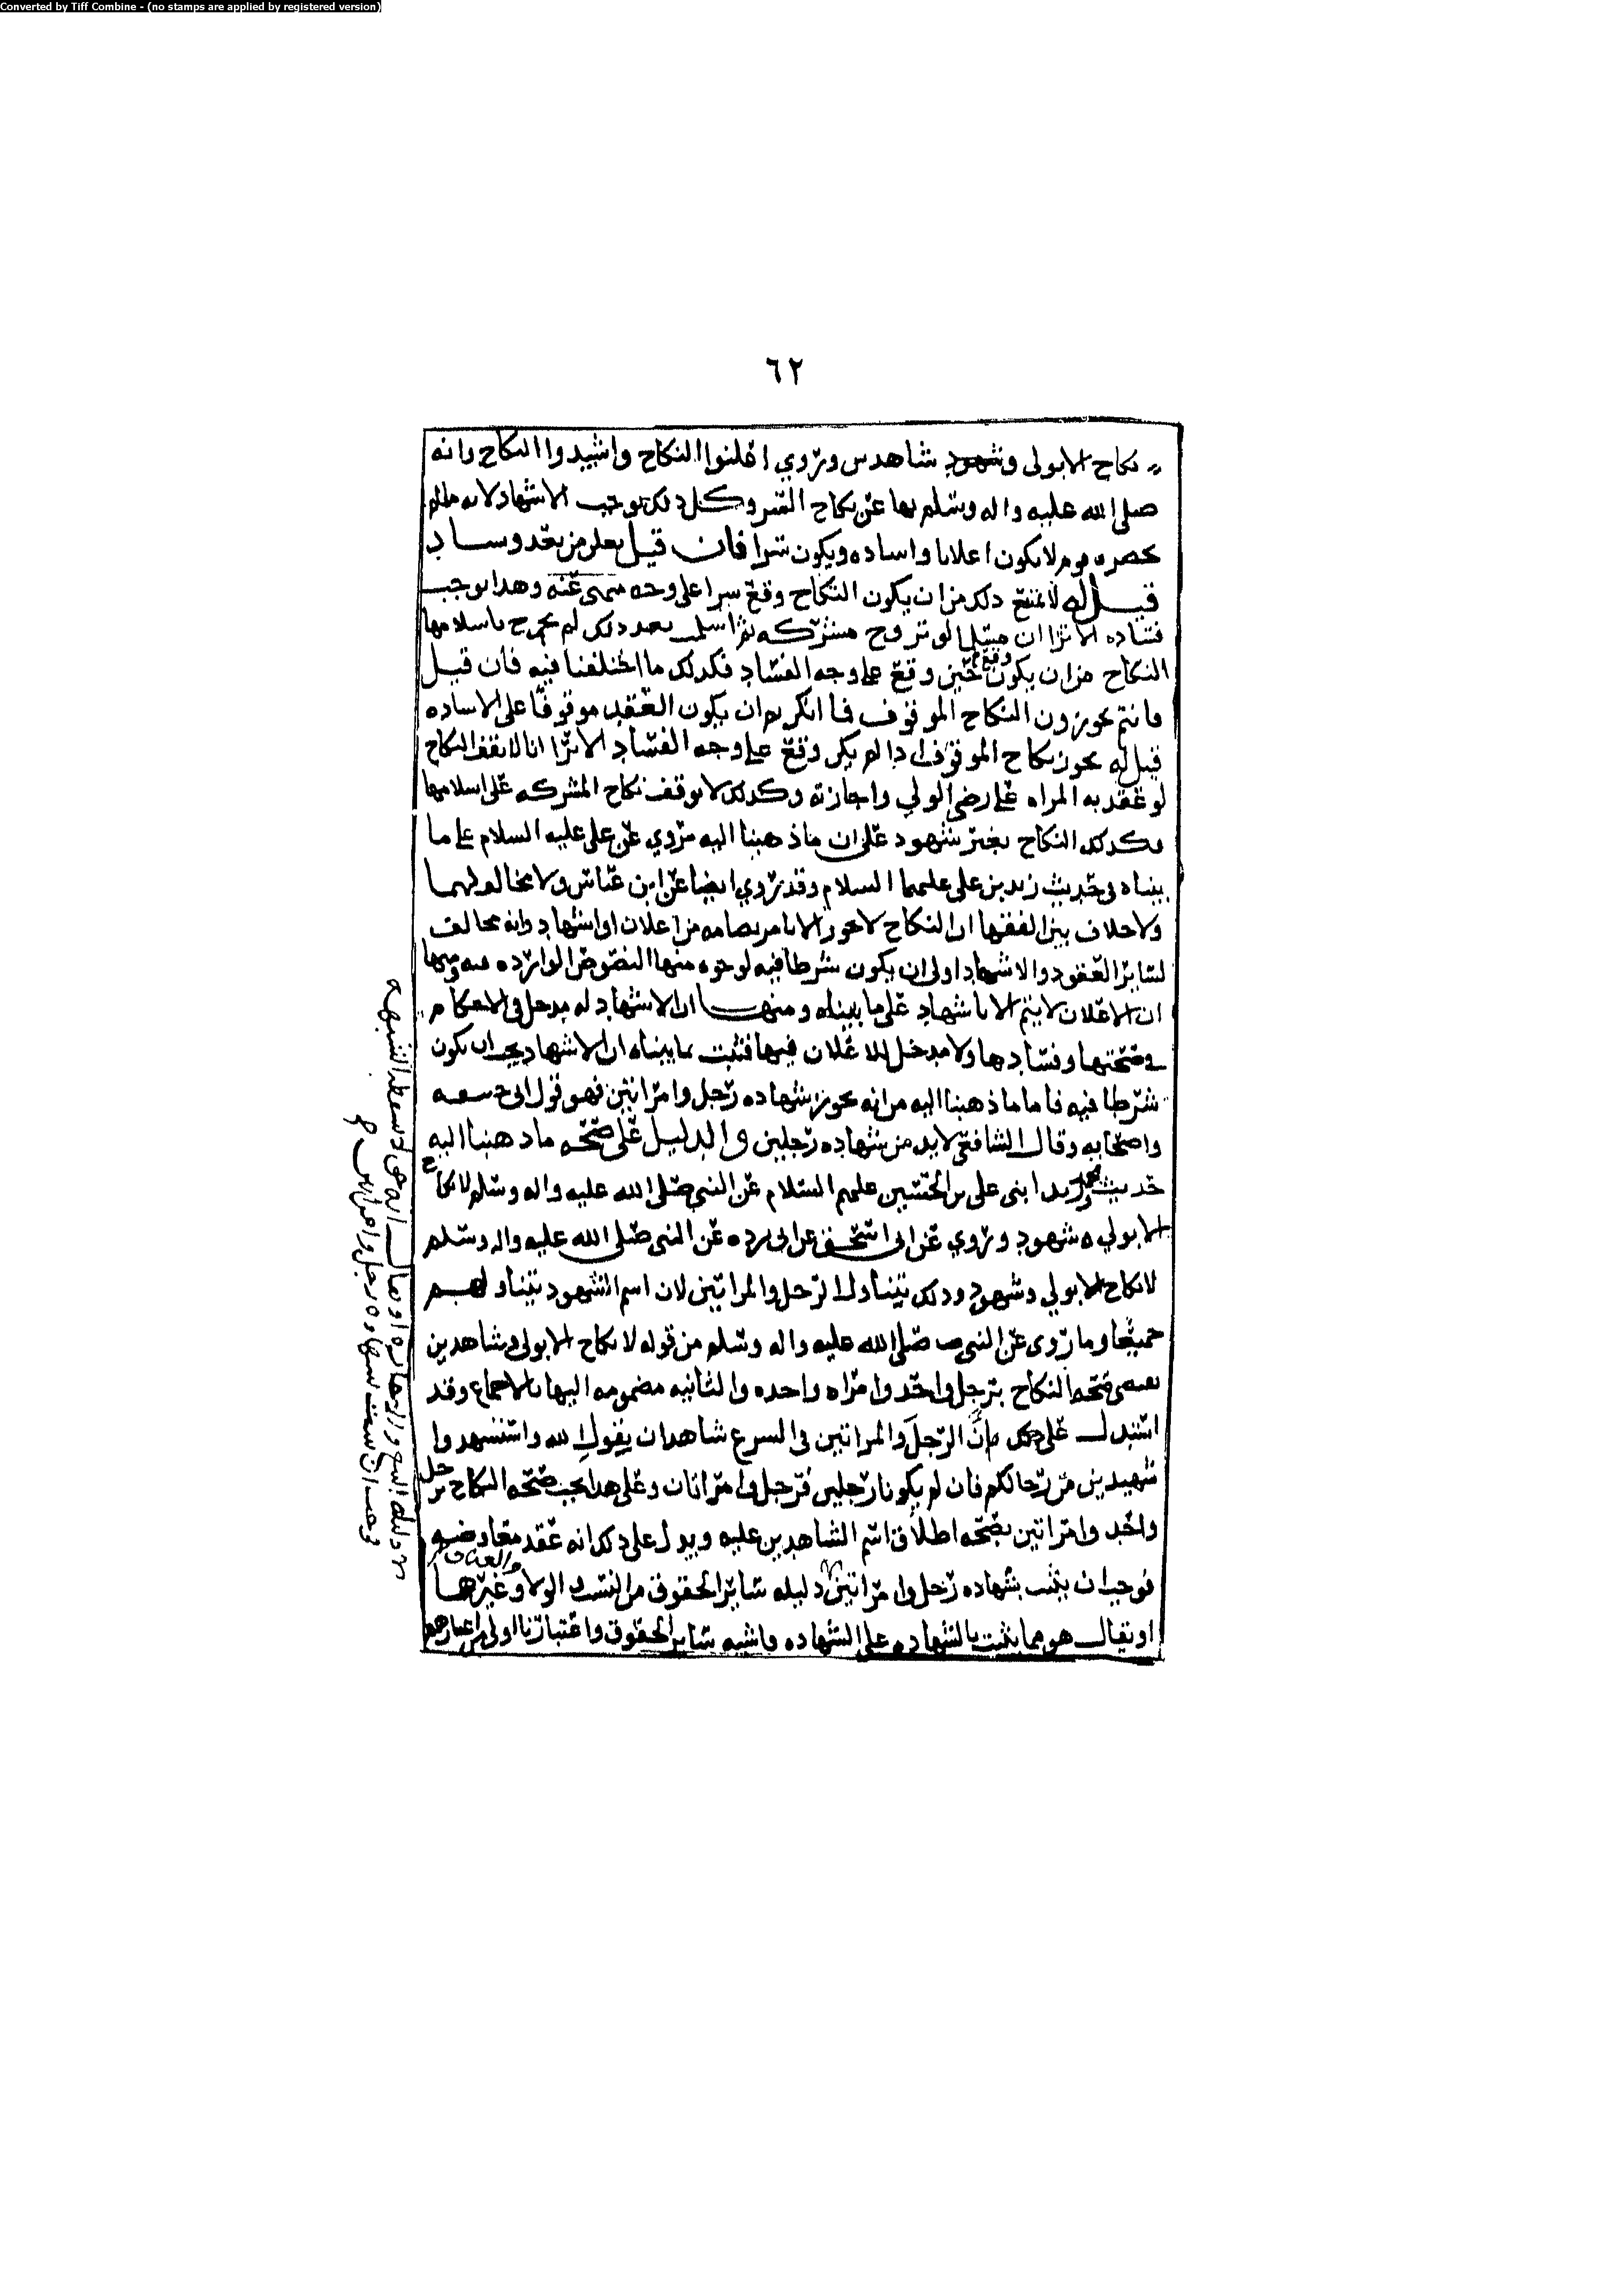 Converted by Tiff Combine - (no stamps are applied by registered version)
٦٢
نكاح الا بولى وشهود شاهدين وروي اعلنوا النكاح واشيدوا النكاح وانه
صلى الله عليه واله وسلم نها عن نكاح السر وكل ذلك يوجب الاشهاد لانه مالم
يحصره لا يكون اعلانا واشاده ويكون سرا فان قيل يعلن من بعد ويشاد
قيل له لا يمنع ذلك من ان يكون النكاح وقع سرا على وجه منهى عنه وهذا يوجب
فساده الا ترا ان مسلما لو تزوج مشركه ثم اسلمت بعد ذلك لم يخرج باسلامها
النكاح من ان يكون حين وقع وقع على وجه الفساد فكذلك ما اختلفنا فيه فان قيل
فانتم تجوزون النكاح الموقوف فما انكرتم ان يكون العقد موقوفا على الاشاده
قيل له يجوز نكاح الموقوف اذا لم يكن وقع على وجه الفساد الا ترا انا لا نقف النكاح
لو عقد به المراه على رضى الولي واجازته وكذلك لا يوقف نكاح المشركه على اسلامها
فكذلك النكاح بغير شهود على ان ما ذهبنا اليه مروي عن على عليه السلام على ما
بيناه فى حديث زيد بن على عليهما السلام وقد روي ايضا عن ابن عباس ولا مخالف لهما
ولا خلاف بين الفقها ان النكاح لا يجوز الا بامر يضامه من اعلان او اشهاد وانه مخالف
لسائر العقود والاشهاد اولى ان يكون شرطا فيه لوجوه منها النصوص الوارده فيه ومنها
ان الاعلان لا يتم الا باشهاد على ما بيناه ومنها ان الاشهاد له مدخل فى الاحكام
فى صحتها وفسادها ولا مدخل للاعلان فيها فثبت بما بيناه ان الاشهاد يجب ان يكون
شرطا فيه فاما ما ذهبنا اليه من انه يجوز بشهاده رجل وامراتين فهو قول ابى حنيفه
واصحابه وقال الشافعى لا بد من شهاده رجلين والدليل على صحه ما ذهبنا اليه
حديث محمد وزيد ابنى على بن الحسين عليهم السلام عن النبى صلى الله عليه واله وسلم لا نكاح
الا بولي وشهود وروي عن ابى اسحق عن ابى برده عن النبى صلى الله عليه واله وسلم
لا نكاح الا بولي وشهود وذلك يتناول الرجل والمراتين لان اسم الشهود يتناولهم
جميعا وما روى عن النبى صلى الله عليه واله وسلم من قوله لا نكاح الا بولى وشاهدين
يقتضى صحه النكاح برجل واحد وامراه واحده والثانيه مضمومه اليها بالاجماع وقد
استدل على ذلك بان الرجل والمراتين فى الشرع شاهدان يقول الله واستشهدوا
شهيدين من رجالكم فان لم يكونا رجلين فرجل وامراتان وعلى هذا يجب صحه النكاح برجل
واحد وامراتين بصحه اطلاق اسم الشاهدين عليه ويدل على ذلك انه عقد معاوضه
فوجب ان يثبت بشهاده رجل وامراتين دليله سائر الحقوق من النسب والولا والعتاق وغيرها
او يقال هو مما يثبت بالشهاده على الشهاده فاشبه سائر الحقوق واعتبارنا اولى من اعتبارهم
دليله البيع والاجاره او يقال انه حق لا يسقط بالشبهه
فوجب ان يثبت بشهاده رجل وامراتين